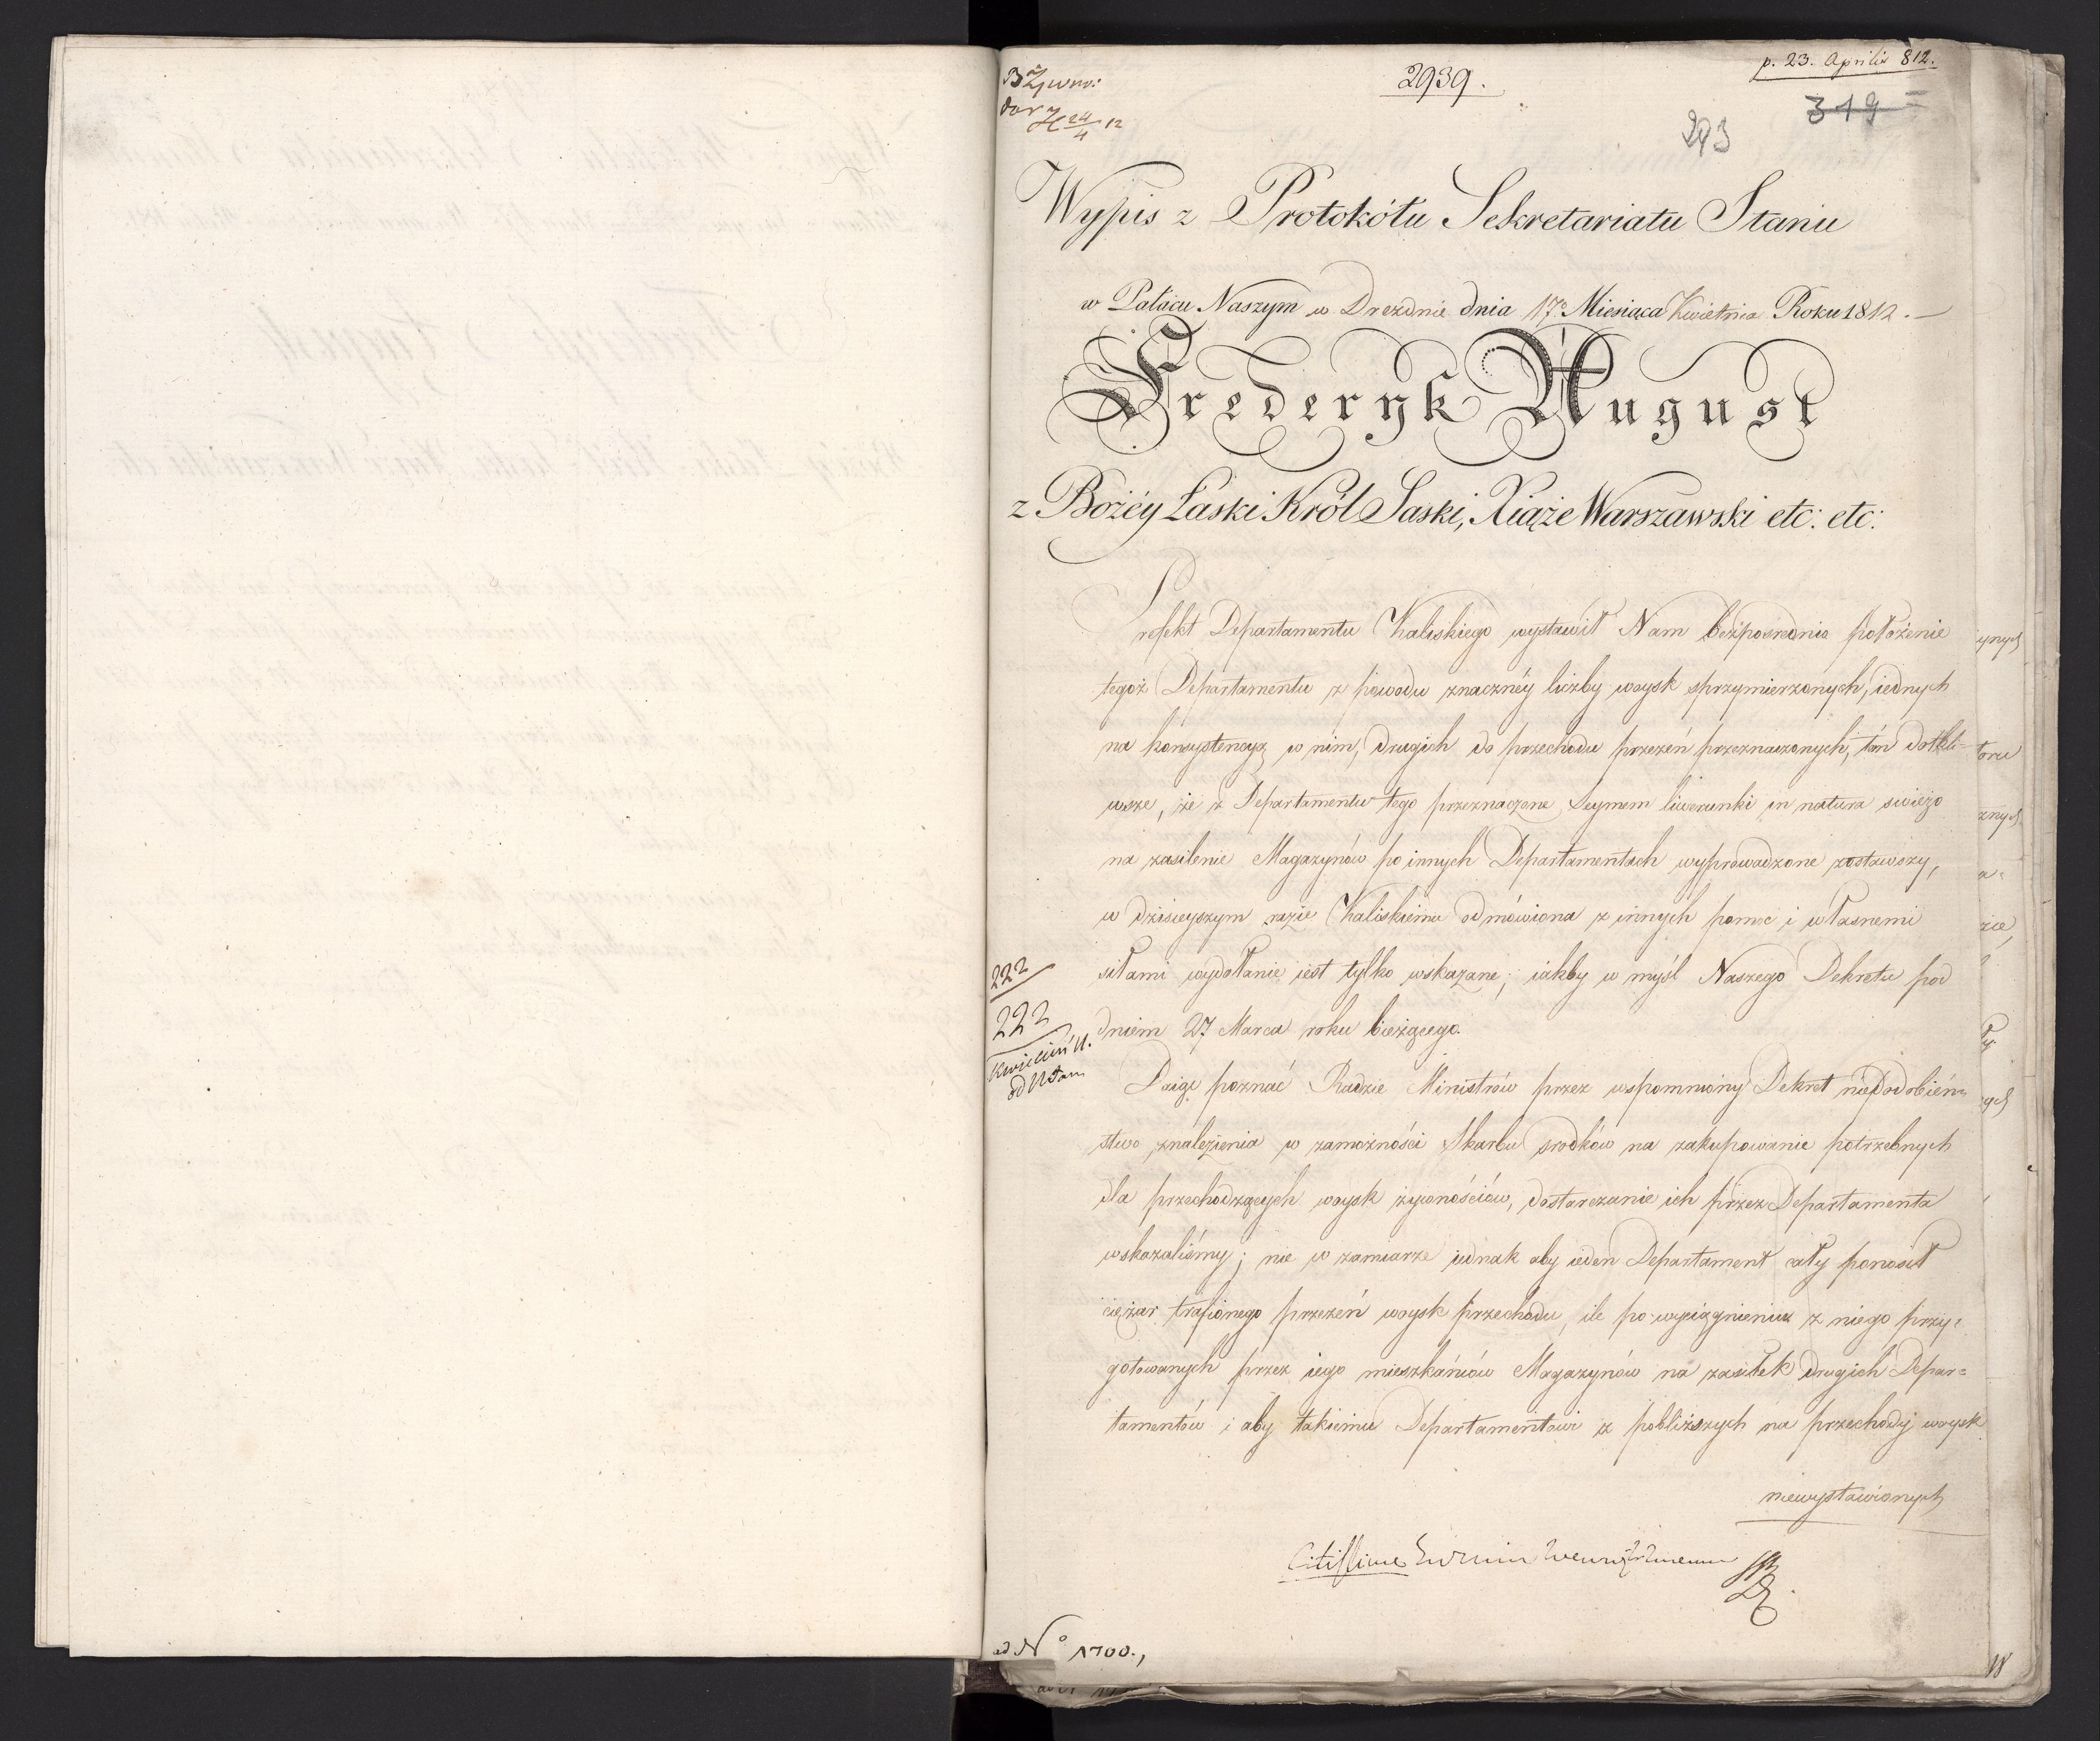 2939.
p. 23. Aprilis 812.
319
293
24/4 12
Wypis z Protokółu Sekretariatu Stanu
w Pałacu Naszym w Dreznie dnia 17º Miesiąca Kwietnia Roku 1812. —
Frederyk August
z Bożéy Łaski Król Saski, Xiąże Warszawski etc: etc:
Prefekt Departamentu Kaliskiego wystawił Nam bezpośrednio położenie
tegoż Departamentu z powodu znacznéy liczby woysk sprzymierzonych, iednych
na konsystencyą w nim, drugich do przechodu przezeń przeznaczonych, tém dotkli-
wsze, że z Departamentu tego przeznaczone Seymem liwerunki in natura swieżo
na zasilenie Magazynów po innych Departamentach wyprowadzone zostawszy,
w dzisieyszym razie Kaliskiemu odmówiona z innych pomoc i własnemi
siłami wydołanie iest tylko wskazane; iakby w myśl Naszego Dekretu pod
dniem 27 Marca roku bieżącego.
Daiąc poznać Radzie Ministrów przez wspomniony Dekret niepodobień-
stwo znalezienia w zamożności Skarbu srodków na zakupowanie potrzebnych
dla przechodzących woysk żywnościów, dostarczanie ich przez Departamenta
wskazaliśmy; nie w zamiarze iednak aby ieden Departament cały ponosił
ciężar trafionego przezeń woysk przechodu, ile po wyciągnieniu z niego przy-
gotowanych przez iego mieszkańców Magazynów na zasiłek drugich Depar=
tamentów i aby takiemu Departamentowi z pobliższych na przechody woysk
niewystawionych
222
222
Kwiecień
Citissime
ad Nº 1700.,
18